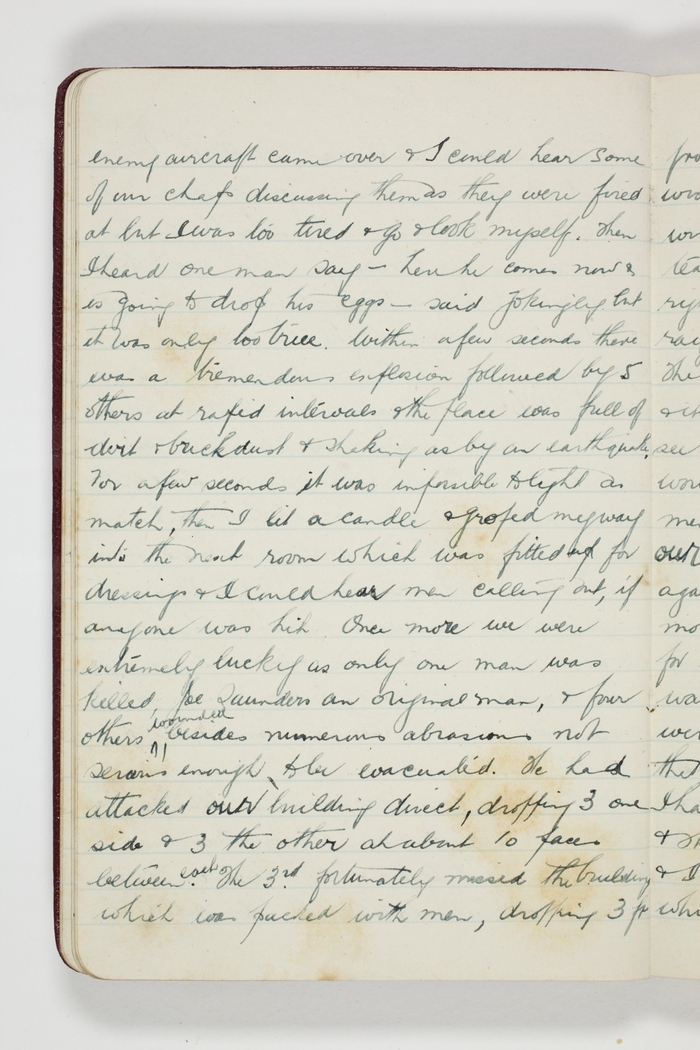 enemy aircraft came over & I could hear some
of our chaps discussing them as they were fired
at but I was too tired to go & look myself. Then
I heard one man say – here he comes now &
is going to drop his eggs – said jokingly but
it was only too true. Within a few seconds there
was a tremendous explosion followed by 5
others at rapid intervals & the place was full of
dirt & brickdust & shaking as by an earthquake.
For a few seconds it was impossible to light a
match, then I lit a candle & groped my way
into the next room which was fitted up for
dressings & I could hear men calling out, if
anyone was hit. Once more we were
extremely lucky as only one man was
killed, Joe Saunders an original man, & four
wounded
others besides numerous abrasions not
serious enough to be evacuated. He had
attacked our building direct, dropping 3 one
side & 3 the other at about 10 paces
between each. The 3rd fortunately missed the building
which was packed with men, dropping 3 ft